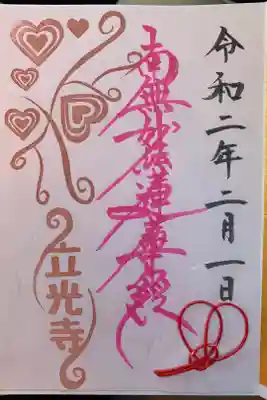 令和二年二月一日
南無妙法蓮華經
立光寺